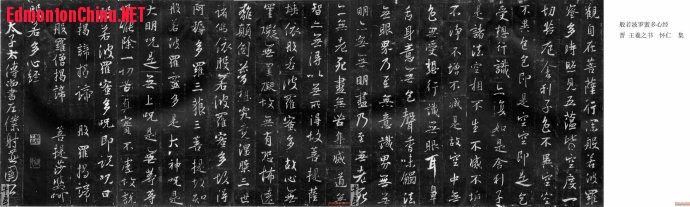 EdmontonChina.NET
般若波罗蜜多心经
晋 王羲之书 怀仁 集
觀自在菩薩行深般若波羅
蜜多時照見五蘊皆空度一
切苦厄舍利子色不異空空
不異色色即是空空即是色
受想行識亦復如是舍利子
是諸法空相不生不滅不垢
不淨不增不減是故空中無
色無受想行識無眼耳鼻
舌身意無色聲香味觸法
無眼界乃至無意識界無無
明亦無無明盡乃至無老死
亦無老死盡無苦集滅道無
智亦無得以無所得故菩提薩
埵依般若波羅蜜多故心無
罣礙無罣礙故無有恐怖遠
離顛倒夢想究竟涅槃三世
諸佛依般若波羅蜜多故得
阿耨多羅三藐三菩提故知
般若波羅蜜多是大神咒是
大明咒是無上咒是無等等
咒能除一切苦真實不虛故說
般若波羅蜜多咒即說咒曰
揭諦揭諦 般羅揭諦
般羅僧揭諦 菩提莎婆呵
般若多心經
太子太傅尚書左僕射燕國公